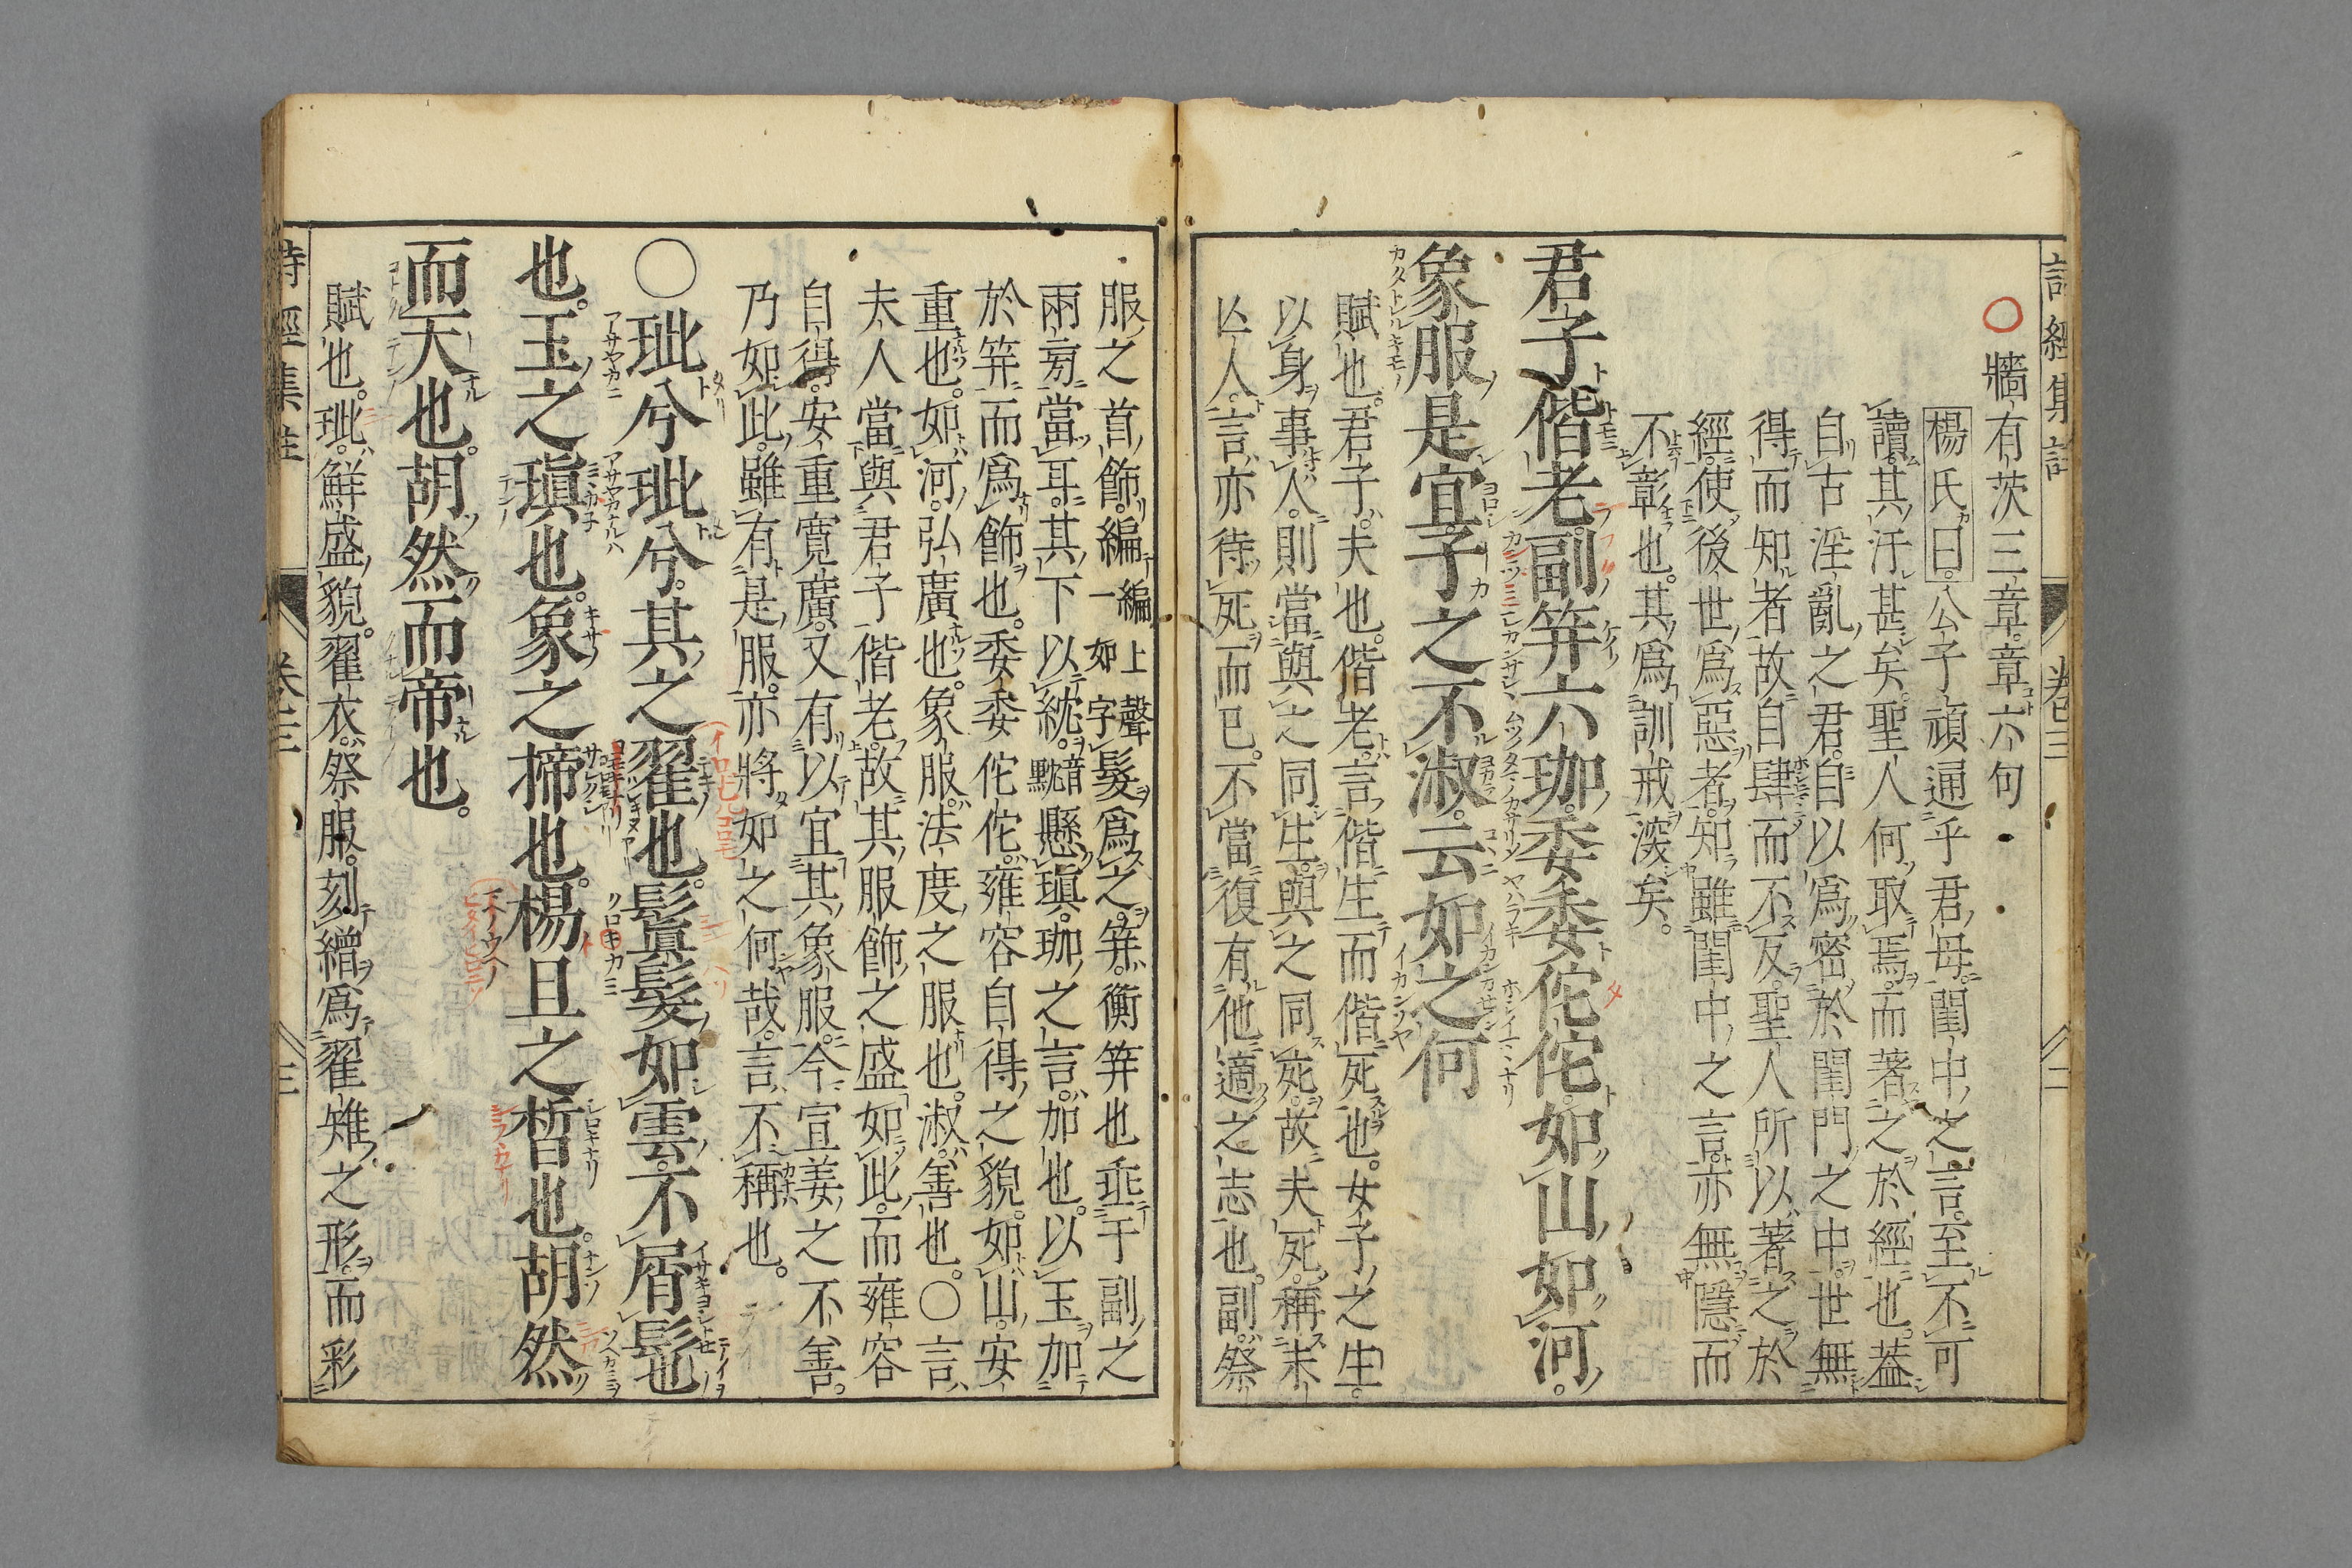 詩經集註 卷三 二
牆有茨三章章六句
楊氏曰公子頑通乎君母閨中之言至不可
讀其汙甚矣聖人何取焉而著之於經也葢
自古淫亂之君自以爲密於閨門之中世無
得而知者故自肆而不反聖人所以著之於
經使後世爲惡者知雖閨中之言亦無隱而
不彰也其爲訓戒深矣。
君子偕老副笄六珈委委佗佗如山如河。
象服是宜子之不淑云如之何
賦也。君子夫也。偕老言偕生而偕死也。女子之生。
以身事人。則當與之同生與之同死。故夫死稱未
亾人。言亦待死而已。不當復有他適之志也。副祭
服之首飾編編上聲一如字髮爲之。笄衡笄也垂于副之
兩㫄當耳。其下以紞音黕懸瑱。珈之言加也。以玉加
於笄而爲飾也。委委佗佗。雍容自得之貌。如山。安
重也。如河。弘廣也。象服法度之服也。淑善也。〇言
夫人當與君子偕老。故其服飾之盛如此。而雍容
自得。安重寛廣。又有以宜其象服。今宣姜之不善。
乃如此。雖有是服。亦將如之何哉。言不稱也。
〇玼兮玼兮。其之翟也。鬒髮如雲。不屑髢也
也。玉之瑱也。象之揥也。楊且之晳也。胡然
而天也。胡然而帝也。
賦也。玼鮮盛貌。翟衣。祭服。刻繒爲翟雉之形。而彩
詩經集註 卷三 三